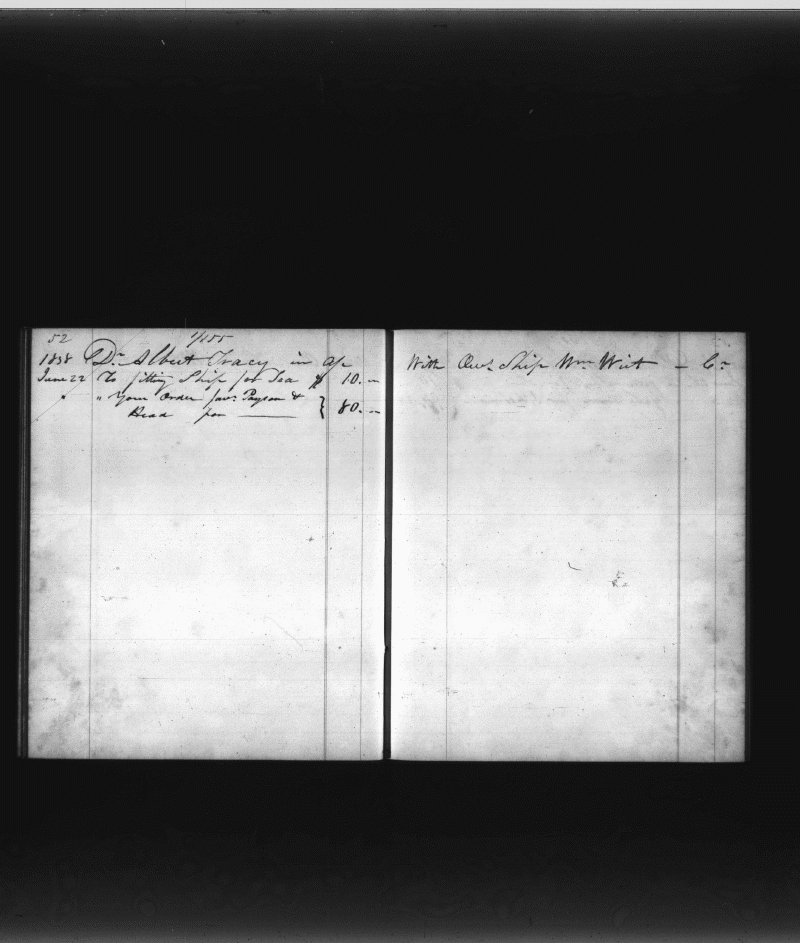 52
1838 Dr. Albert Tracy in a/c
June 22 To fitting Ship for Sea $ 10.
" Your Order favr. Payson &
Head for 80.
With Owrs. Ship Wm. Wirt — Cr.